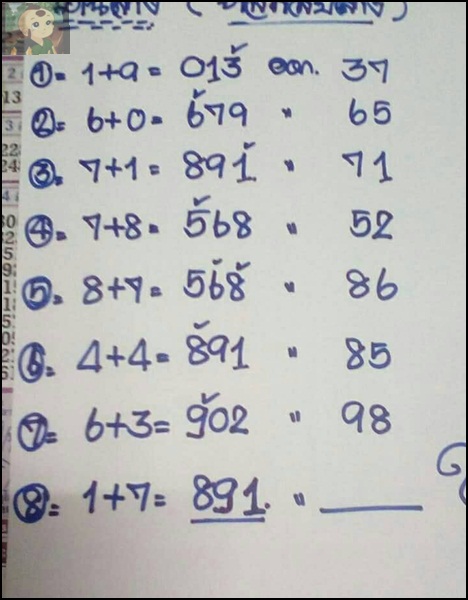 ①= 1+9= 013 ออก. 37
②= 6+0= 679 " 65
③= 7+1= 891 " 71
④= 7+8= 568 " 52
⑤= 8+7= 568 " 86
⑥= 4+4= 891 " 85
⑦= 6+3= 902 " 98
⑧= 1+7= 891. " ____